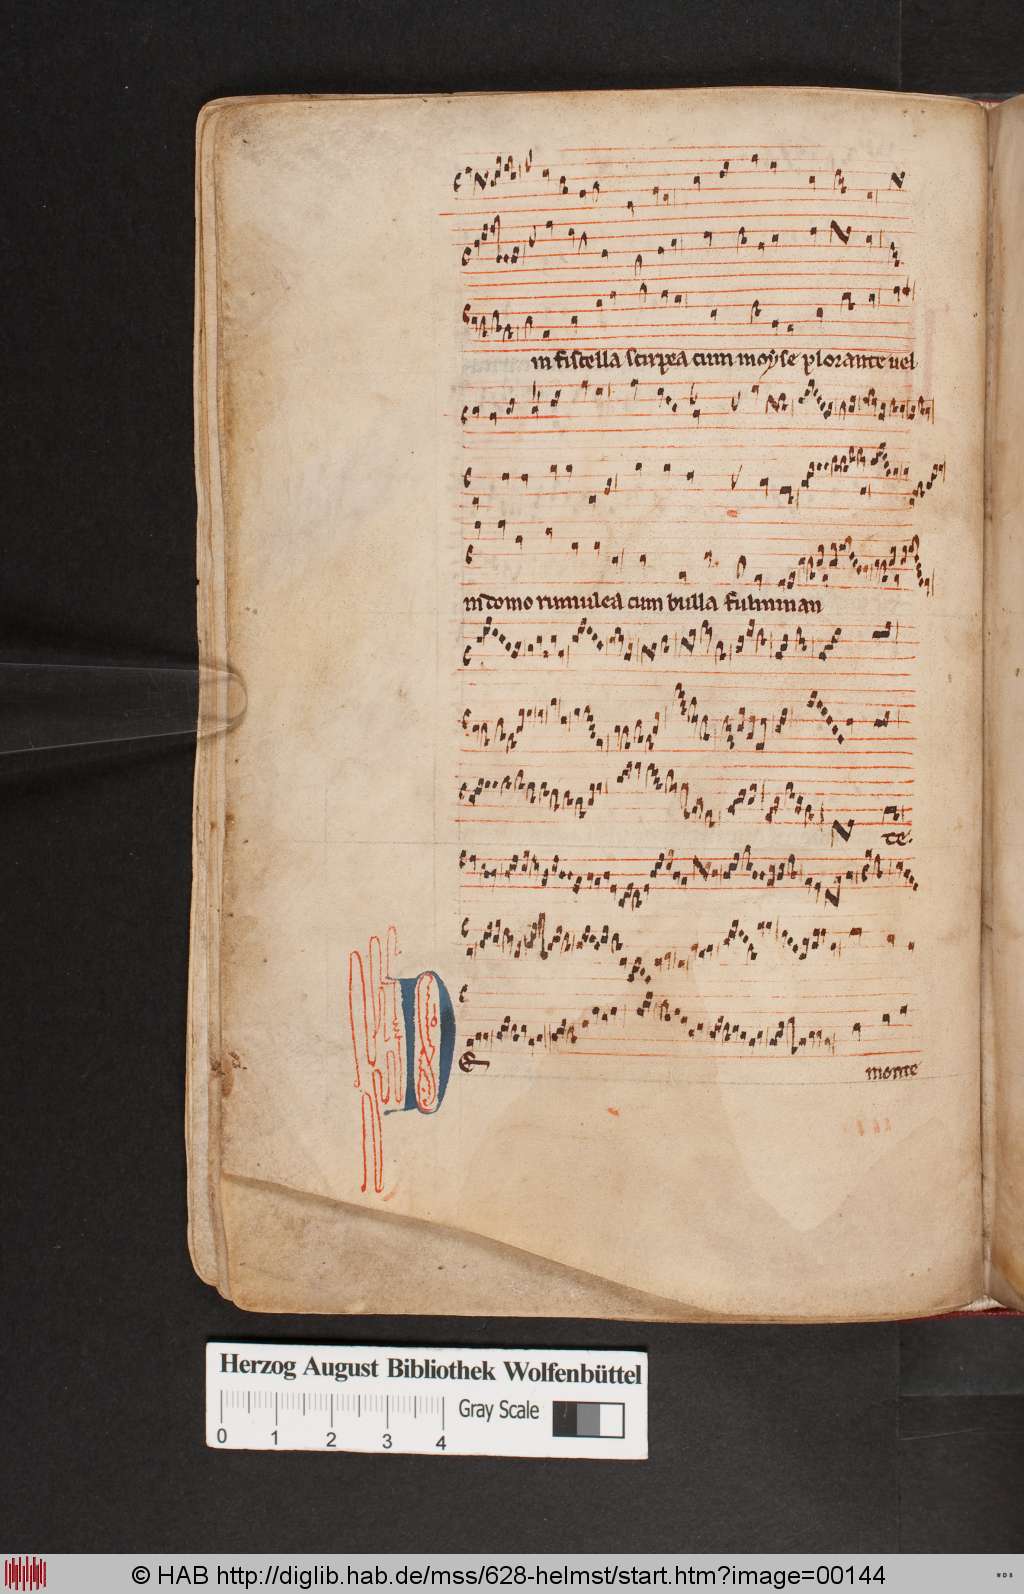 in fiscella scirpea cum moyse plorante uel
in domo romulea cum bulla fulminan
te.
monte
Herzog August Bibliothek Wolfenbüttel
0 1 2 3 4 Gray Scale
© HAB http://diglib.hab.de/mss/628-helmst/start.htm?image=00144